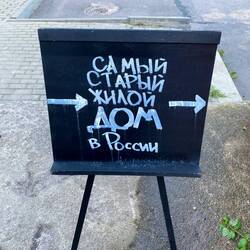 САМЫЙ
СТАРЫЙ
ЖИЛОЙ
ДОМ
в РОССИИ